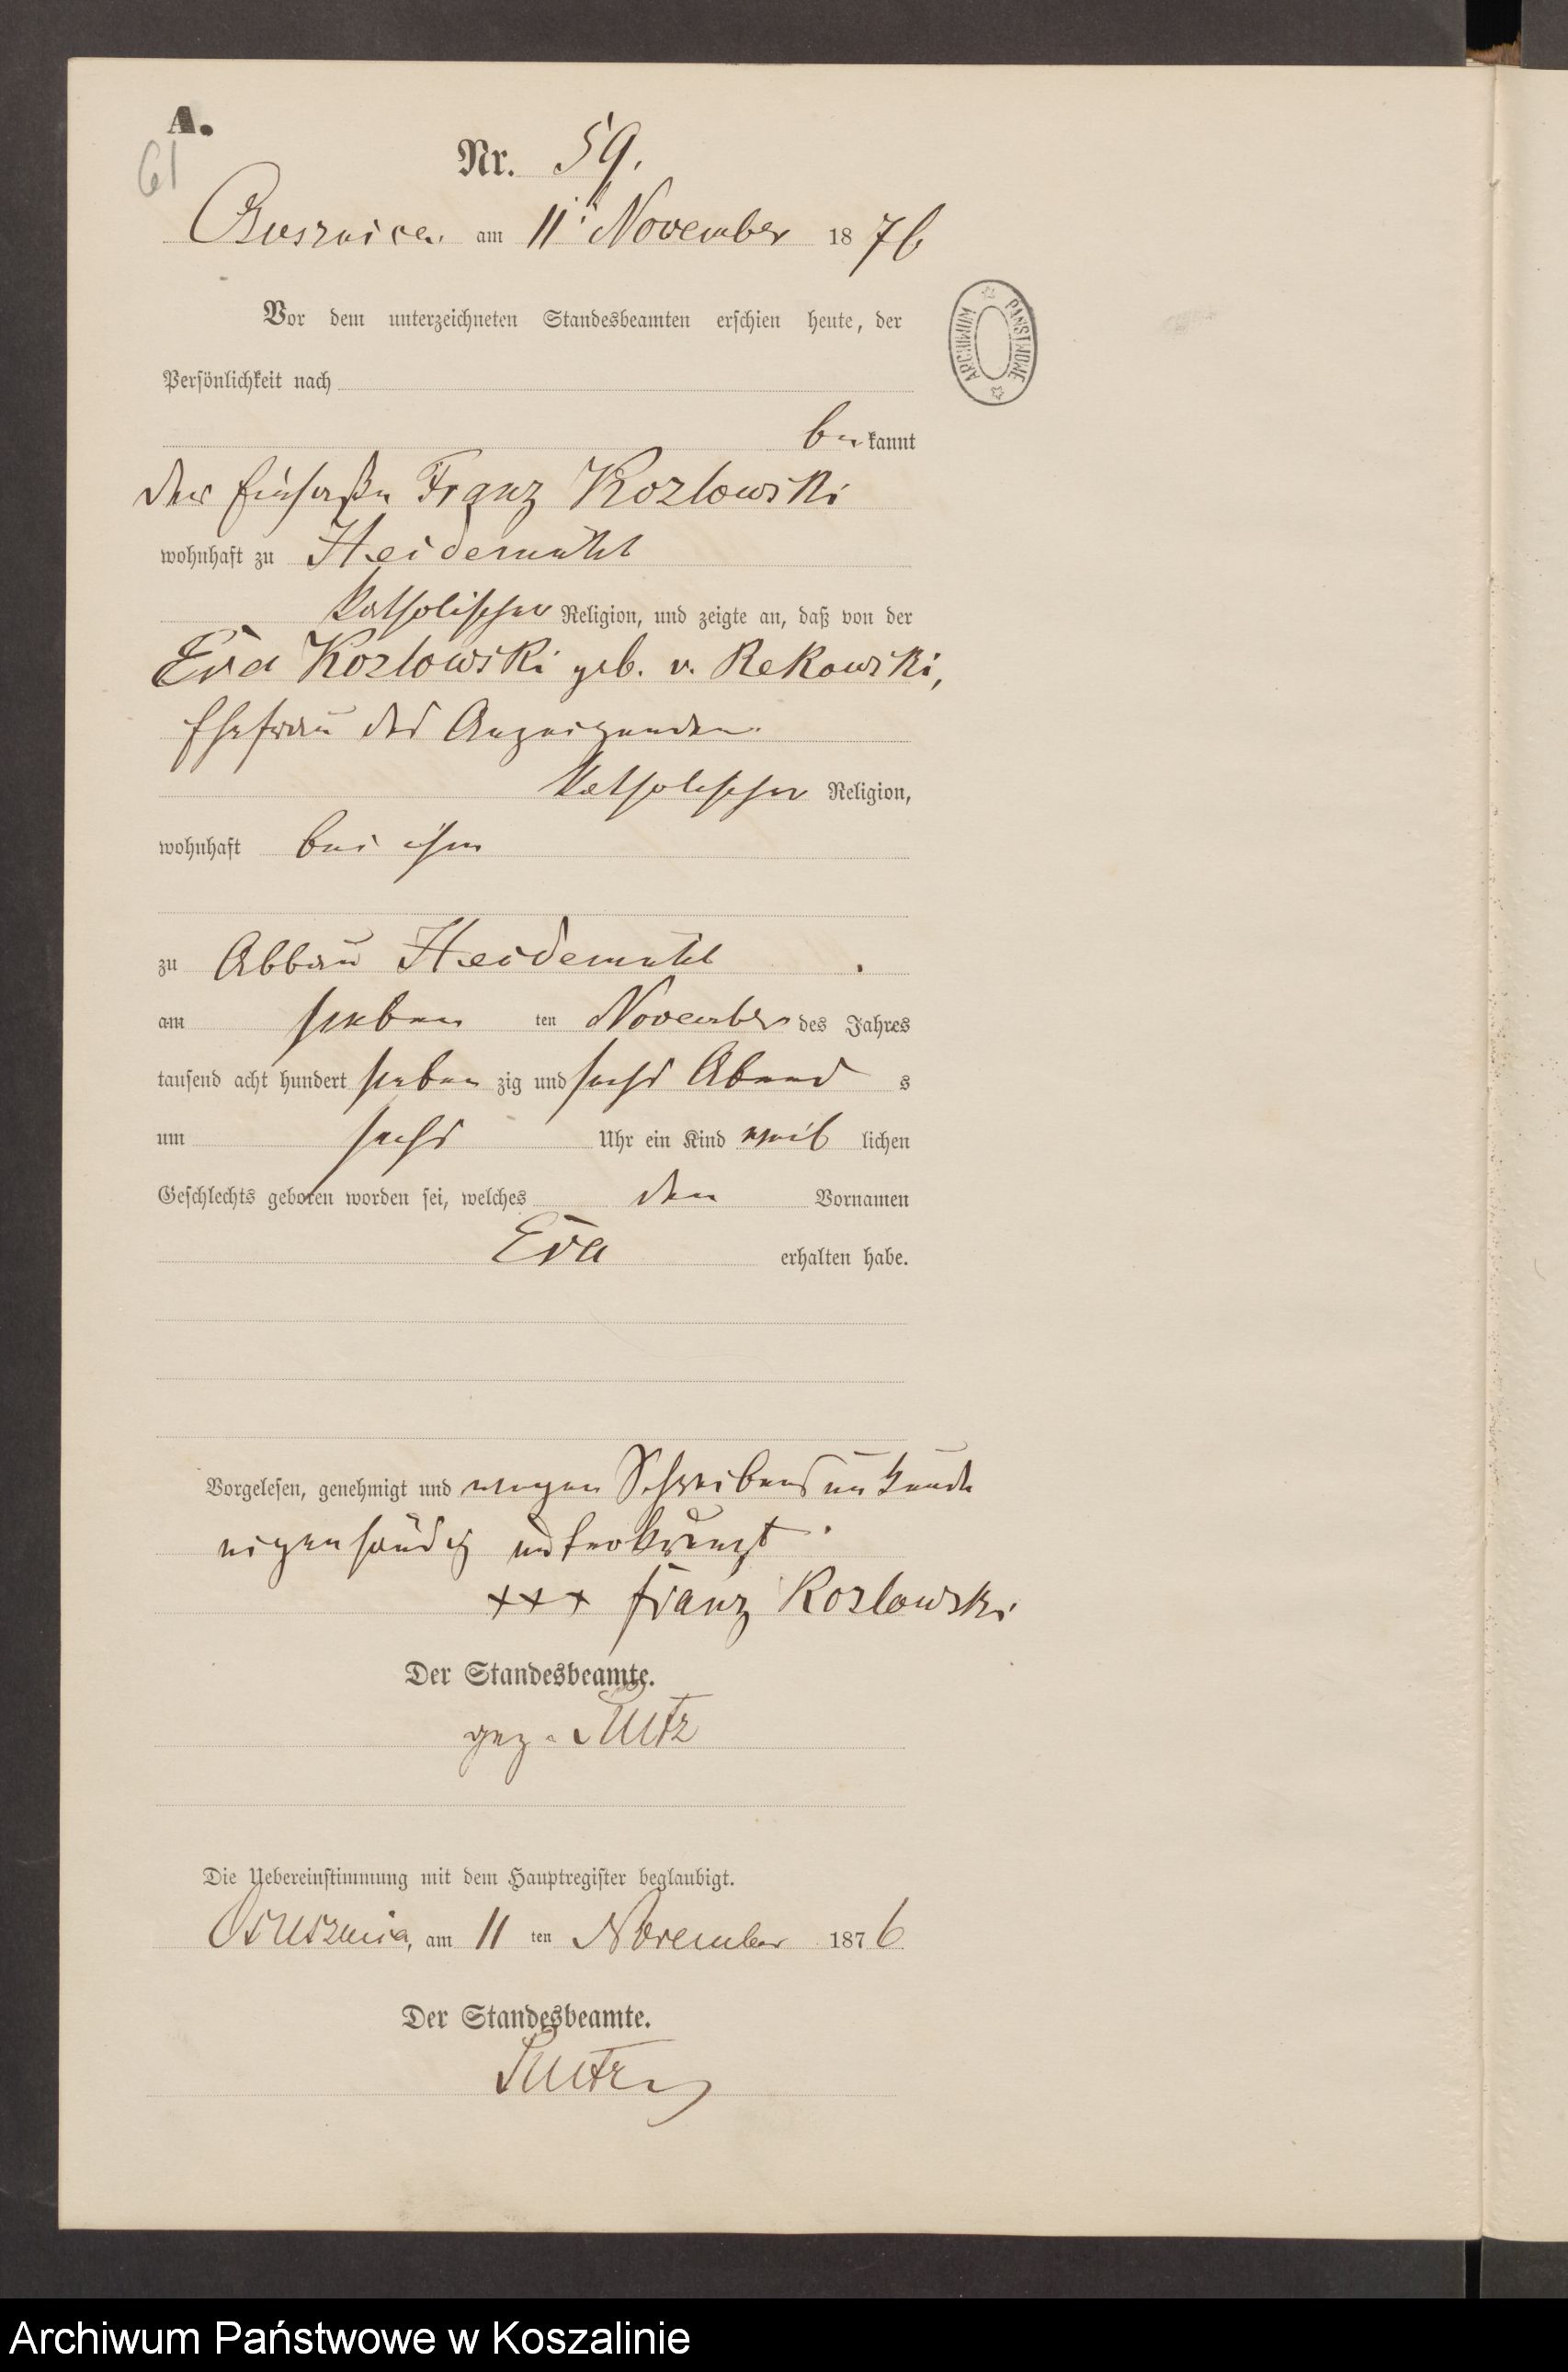 A.
61
Nr. 59.
am 11 November 1876
Vor dem unterzeichneten Standesbeamten erschien heute, der
Persönlichkeit nach
be kannt
der Einsaße Franz Kozlowski
wohnhaft zu Heidemühl
katholischer Religion, und zeigte an, daß von der
Eva Kozlowski geb. v. Rekowski,
Ehefrau des Anzeigenden
katholischer Religion,
wohnhaft bei ihm
zu Abbau Heidemühl
am sieben ten November des Jahres
tausend acht hundert sieben zig und sechs Abend s
um sechs Uhr ein Kind weib lichen
Geschlechts geboren worden sei, welches den Vornamen
Eva erhalten habe.
Vorgelesen, genehmigt und wegen Schreibensunkunde
eigenhändig unterkreuzt
+++ Franz Kozlowski
Der Standesbeamte.
gez.
Die Uebereinstimmung mit dem Hauptregister beglaubigt.
am 11 ten November 1876
Der Standesbeamte.
ARCHIWUM PAŃSTWOWE
Archiwum Państwowe w Koszalinie